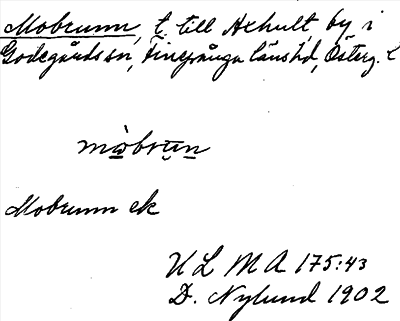 Mobrunn, t. till Axhult, by i
Godegårds sn, Finspånga länshd, Österg. l
mòbrun
Mobrunn ek
ULMA 175:43
D. Nylund 1902